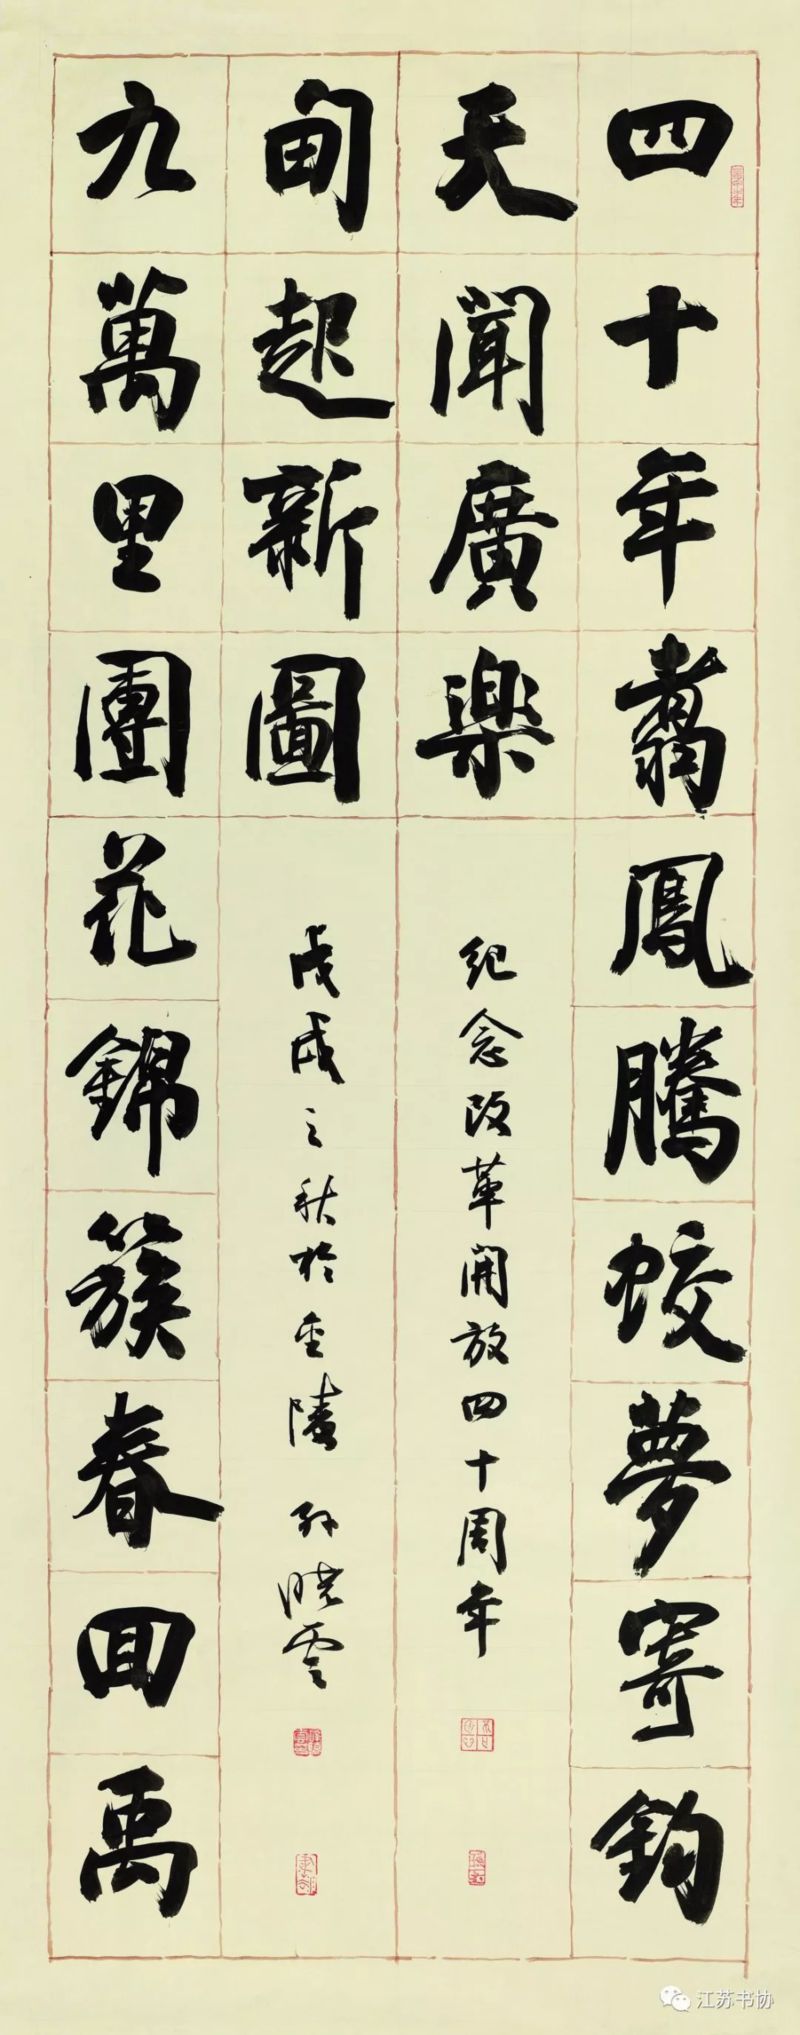 四十年翥鳳騰蛟夢寄鈞
天聞廣樂
九萬里團花錦簇春囬禹
甸起新圖
紀念改革開放四十周年
戊戌之秋於金陵 孫曉雲
江苏书协